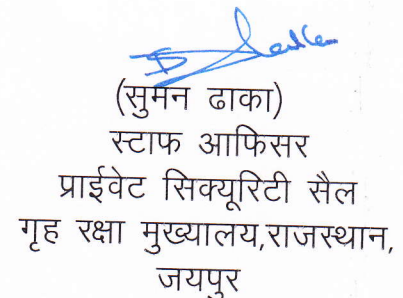 (सुमन ढाका)
स्टाफ आफिसर
प्राईवेट सिक्यूरिटी सैल
गृह रक्षा मुख्यालय,राजस्थान,
जयपुर